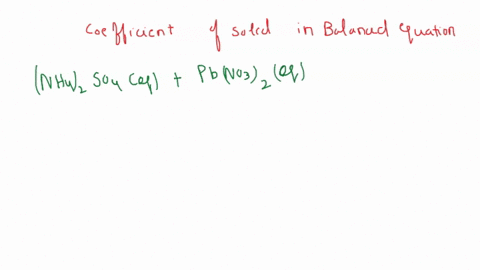 Coefficient of solid in Balanced equation
(NH4)2 SO4 (aq) + Pb(NO3)2 (aq)